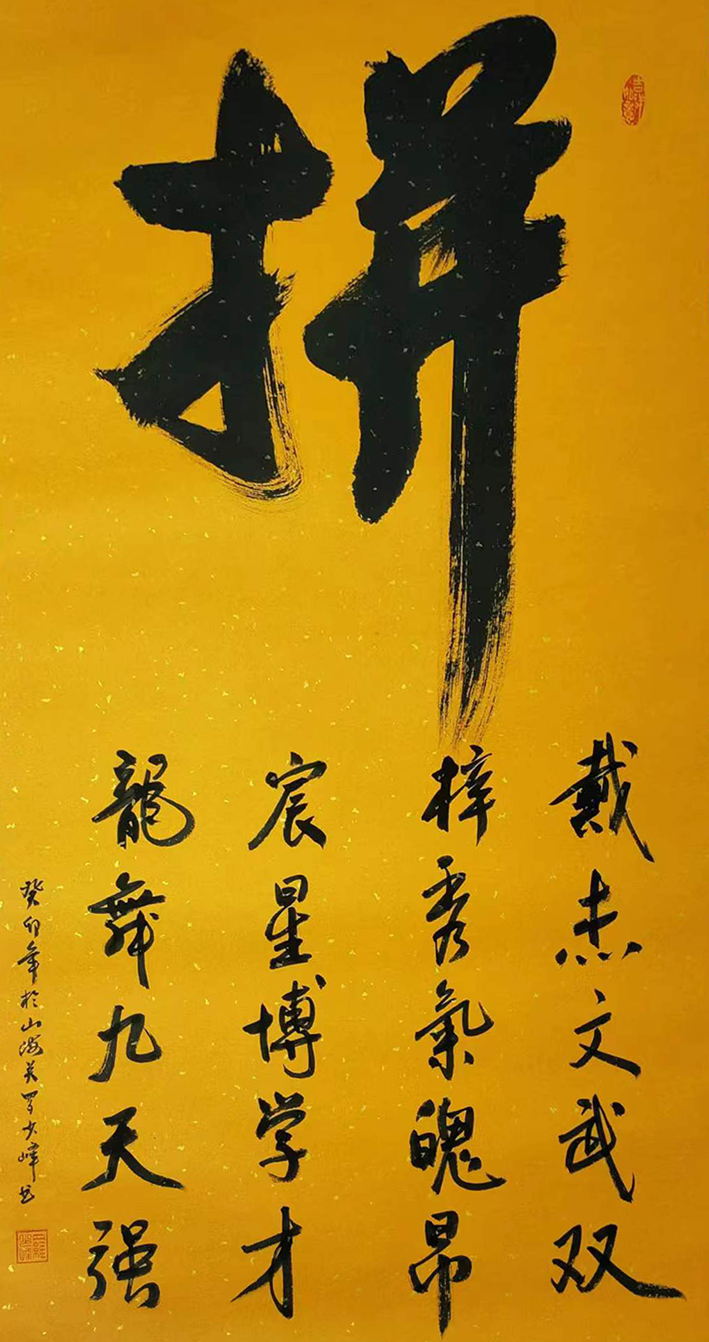 拼
戴杰文武双
梓秀氣魄昂
宸星博学才
龍舞九天强
癸卯年於山海关罗少峰书